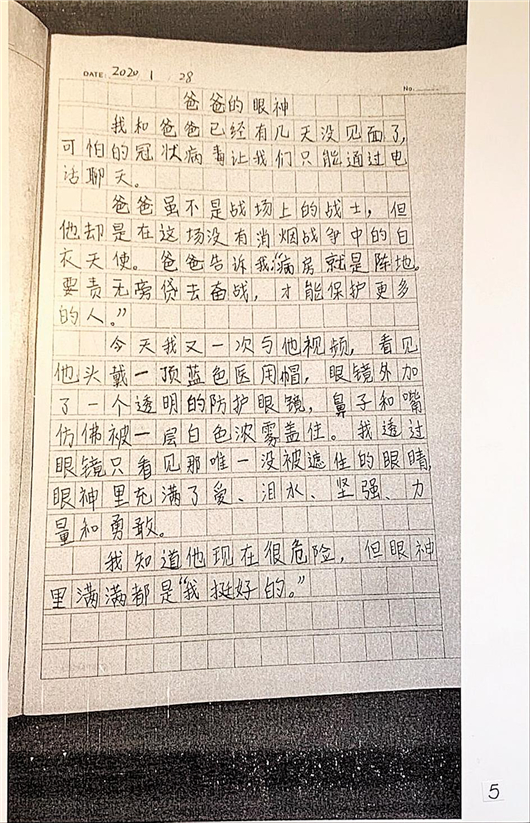 DATE: 2020 1 28
No.
爸爸的眼神
我和爸爸已经有几天没见面了,
可怕的冠状病毒让我们只能通过电
话聊天。
爸爸虽不是战场上的战士，但
他却是在这场没有消烟战争中的白
衣天使。爸爸告诉我:“病房就是阵地。
要责无旁贷去奋战，才能保护更多
的人。”
今天我又一次与他视频，看见
他头戴一顶蓝色医用帽，眼镜外加
了一个透明的防护眼镜，鼻子和嘴
仿佛被一层白色浓雾盖住。我透过
眼镜只看见那唯一没被遮住的眼睛,
眼神里充满了爱、泪水、坚强、力
量和勇敢。
我知道他现在很危险，但眼神
里满满都是“我挺好的。”
5